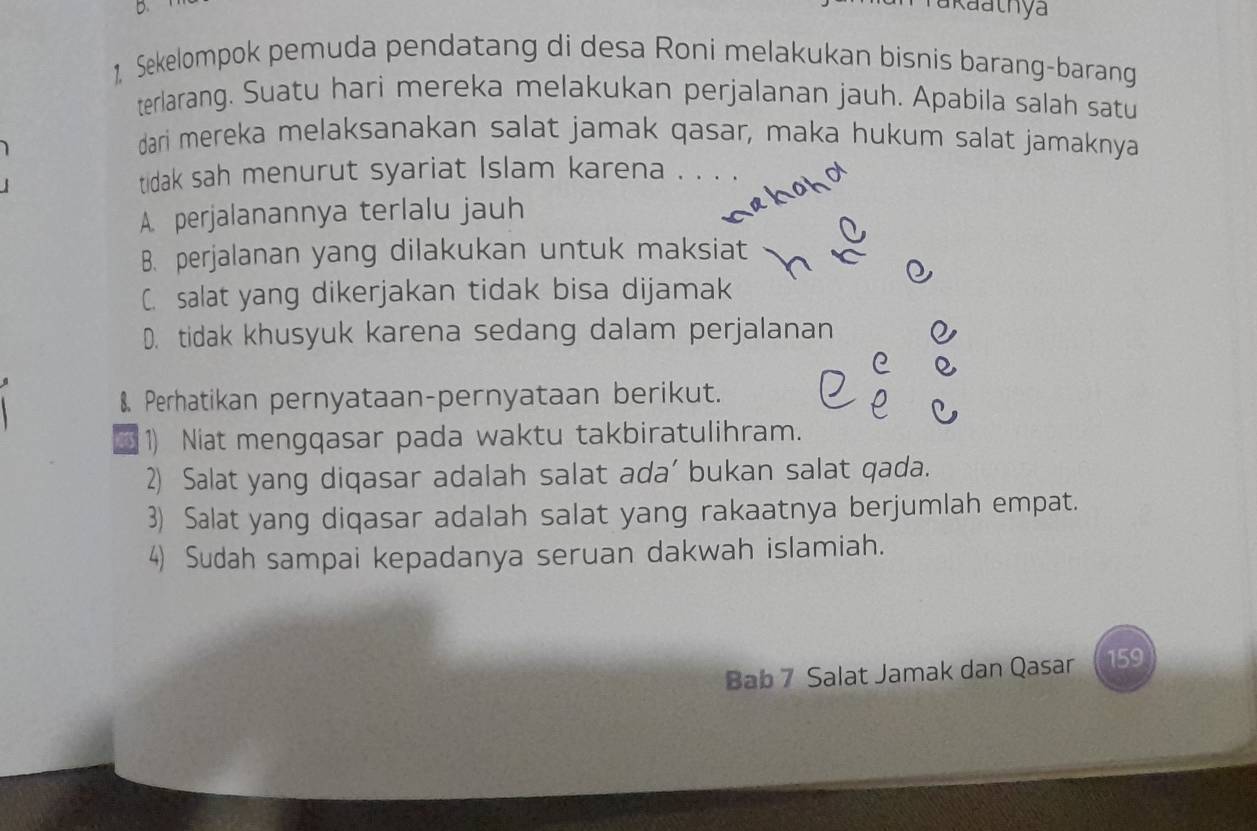 B.
7. Sekelompok pemuda pendatang di desa Roni melakukan bisnis barang-barang
terlarang. Suatu hari mereka melakukan perjalanan jauh. Apabila salah satu
dari mereka melaksanakan salat jamak qasar, maka hukum salat jamaknya
tidak sah menurut syariat Islam karena . . . .
A. perjalanannya terlalu jauh
B. perjalanan yang dilakukan untuk maksiat
C. salat yang dikerjakan tidak bisa dijamak
D. tidak khusyuk karena sedang dalam perjalanan
8. Perhatikan pernyataan-pernyataan berikut.
1) Niat mengqasar pada waktu takbiratulihram.
2) Salat yang diqasar adalah salat ada' bukan salat qada.
3) Salat yang diqasar adalah salat yang rakaatnya berjumlah empat.
4) Sudah sampai kepadanya seruan dakwah islamiah.
Bab 7 Salat Jamak dan Qasar 159